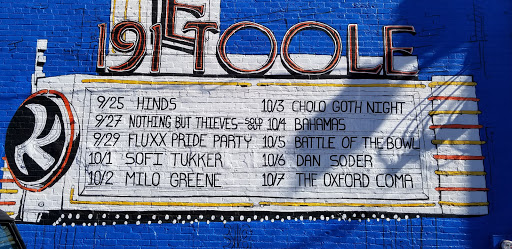 191 TOOLE
9/25 HINDS
9/27 NOTHING BUT THIEVES-SOLD OUT
9/29 FLUXX PRIDE PARTY
10/1 SOFI TUKKER
10/2 MILO GREENE
10/3 CHOLO GOTH NIGHT
10/4 BAHAMAS
10/5 BATTLE OF THE BOWL
10/6 DAN SODER
10/7 THE OXFORD COMA